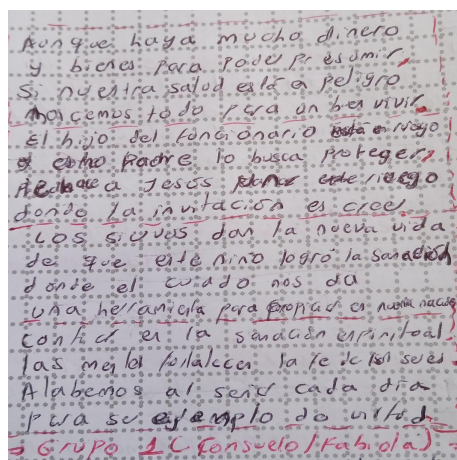 Aunque haya mucho dinero
y bienes para poder presumir,
Si nuestra salud está a peligro
hacemos todo para un bien vivir.
El hijo del funcionario está en riesgo
como Padre lo busca proteger,
a Jesús este riesgo
donde la invitación es creer.
Los siervos dan la nueva vida
de que este niño logró la sanación
donde el cuidado nos da
una herramienta para
confiar en la sanación espiritual
las fortalecer la fe de los seres
Alabemos al señor cada día
para su ejemplo de virtud.
Grupo 1 (Consuelo/Fabiola)